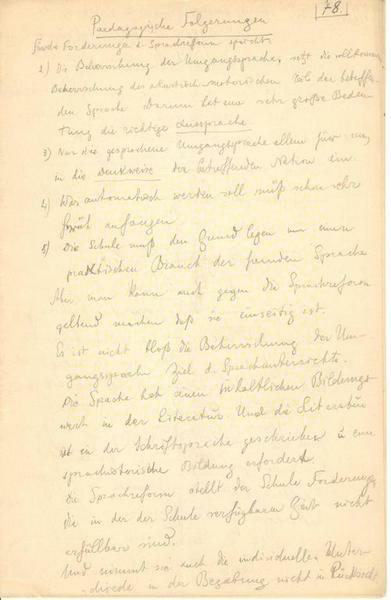 78.
Paedagogische Folgerungen
Für die Forderungen d. Sprachreform spricht:
2) Die Beherrschung der Umgangssprache, setzt die vollkommene
Beherrschung des akustisch-motorischen Teils der betreffen
den Sprache Darum hat eine sehr große Bedeu
tung die richtige Aussprache
3) Nur die gesprochene Umgangssprache allein führt uns
in die Denkweise der betreffenden Nation ein.
4) Was automatisch werden soll muß schon sehr
früh anfangen
5) Die Schule muß den Grund legen zu einem
praktischen Brauch der fremden Sprache
Aber man kann auch gegen die Sprachreform
geltend machen daß sie einseitig ist.
Es ist nicht bloß die Beherrschung der Um
gangssprache Ziel d. Sprachunterrichts.
Die Sprache hat einen inhaltlichen Bildungs
wert in der Literatur Und die Literatur
ist in der Schriftsprache geschrieben u eine
sprachhistorische Bildung erfordert
die Sprachreform stellt der Schule Forderungen
die in der der Schule verfügbaren Zeit nicht
erfüllbar sind.
Und nimmt sie auch die individuellen Unter
schiede in der Begabung nicht in Rücksicht